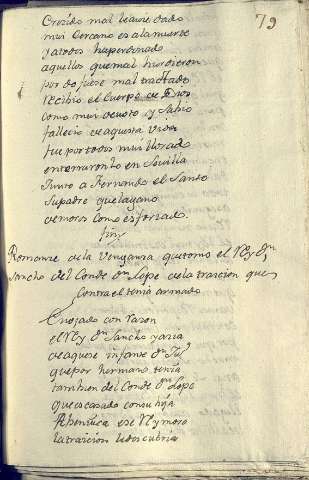 79
Crecido mal leavie dado
mui Cercano es ala muerte
y atodos ha perdonado
aquellos que mal hicieron
por do fuese mal tractado
recibio el Cuerpo de Dios
como mui devoto y Sabio
fallecio de aquesta vida
fue por todos mui llorado
enterraronlo en Sevilla
Junto a Fernando el Santo
Su padre que la gano
de moros como esforzado.
fin
Romance de la Venganza que tomo el Rey Dn
Sancho del Conde Dn Lope de la traicion que
Contra el tenia armado
Enojado con razon
el Rey Dn Sancho yazia
de aquese infante Dn Juo
que por hermano tenia
tambien del Conde Dn Lope
que es casado con su hija
ese Rey moro
la traicion le descubria